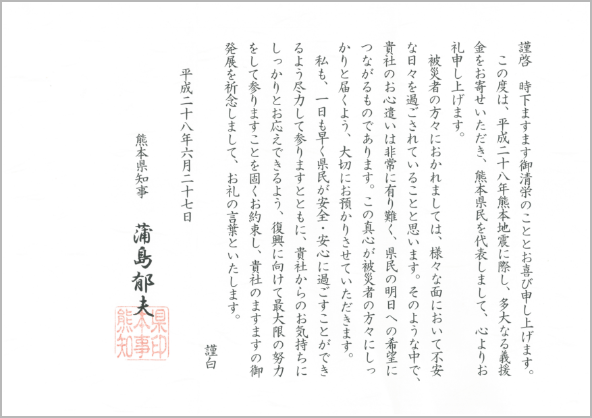 謹啓　時下ますます御清栄のこととお喜び申し上げます。
この度は、平成二十八年熊本地震に際し、多大なる義援
金をお寄せいただき、熊本県民を代表しまして、心よりお
礼申し上げます。
被災者の方々におかれましては、様々な面において不安
な日々を過ごされていることと思います。そのような中で、
貴社のお心遣いは非常に有り難く、県民の明日への希望に
つながるものであります。この真心が被災者の方々にしっ
かりと届くよう、大切にお預かりさせていただきます。
私も、一日も早く県民が安全・安心に過ごすことができ
るよう尽力して参りますとともに、貴社からのお気持ちに
しっかりとお応えできるよう、復興に向けて最大限の努力
をして参りますことを固くお約束し、貴社のますますの御
発展を祈念しまして、お礼の言葉といたします。
謹白
平成二十八年六月二十七日
熊本県知事　蒲島郁夫
熊本県知事印